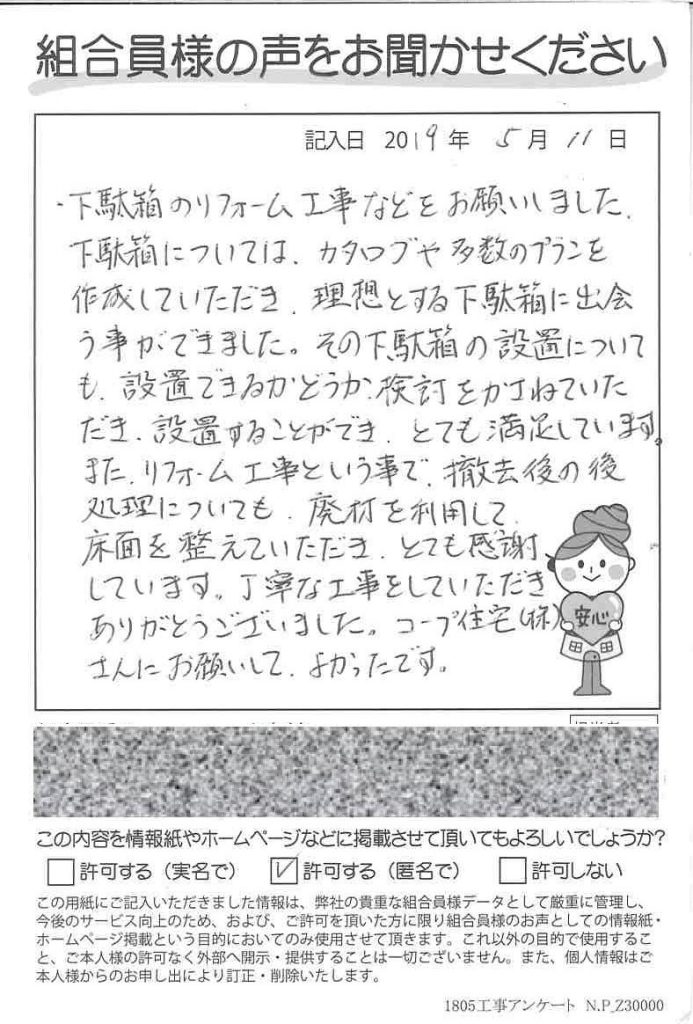 組合員様の声をお聞かせください
記入日 2019年 5月 11日
・下駄箱のリフォーム工事などをお願いしました.
下駄箱については、カタログや多数のプランを
作成していただき、理想とする下駄箱に出会
う事ができました。その下駄箱の設置について
も、設置できるかどうか、検討をかさねていた
だき、設置することができ、とても満足しています。
また、リフォーム工事という事で、撤去後の後
処理についても、廃材を利用して、
床面を整えていただき、とても感謝
しています。丁寧な工事をしていただき
ありがとうございました。コープ住宅(株)
さんにお願いして、よかったです。
安心
この内容を情報紙やホームページなどに掲載させて頂いてもよろしいでしょうか?
□許可する(実名で) ☑許可する(匿名で) □許可しない
この用紙にご記入いただきました情報は、弊社の貴重な組合員様データとして厳重に管理し、
今後のサービス向上のため、および、ご許可を頂いた方に限り組合員様のお声としての情報紙・
ホームページ掲載という目的においてのみ使用させて頂きます。これ以外の目的で使用するこ
と、ご本人様の許可なく外部へ開示・提供することは一切ございません。また、個人情報はご
本人様からのお申し出により訂正・削除いたします。
1805工事アンケート N.P_Z30000